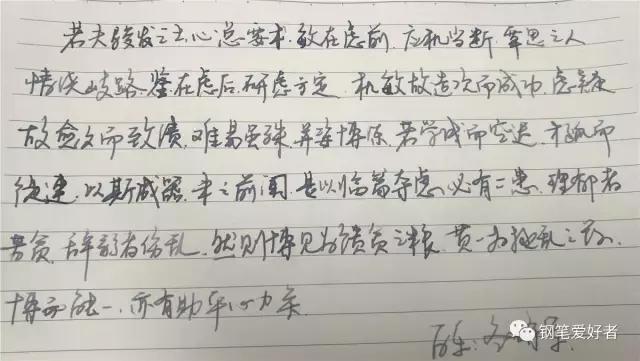 若夫骏发之士，心总要术，敏在虑前，应机当断，覃思之人
情饶歧路，鉴在虑后，研虑方定，机敏故造次而成功，虑疑
故愈久而致绩，难易虽殊，并资博练，若学浅而空迟，才疏而
徒速，以斯成器，未之前闻，是以临篇缀虑，必有二患，理郁者
苦贫，辞弱者伤乱，然则博见为馈贫之粮，贯一为拯乱之药，
博而能一，亦有助乎心力矣
钢笔爱好者